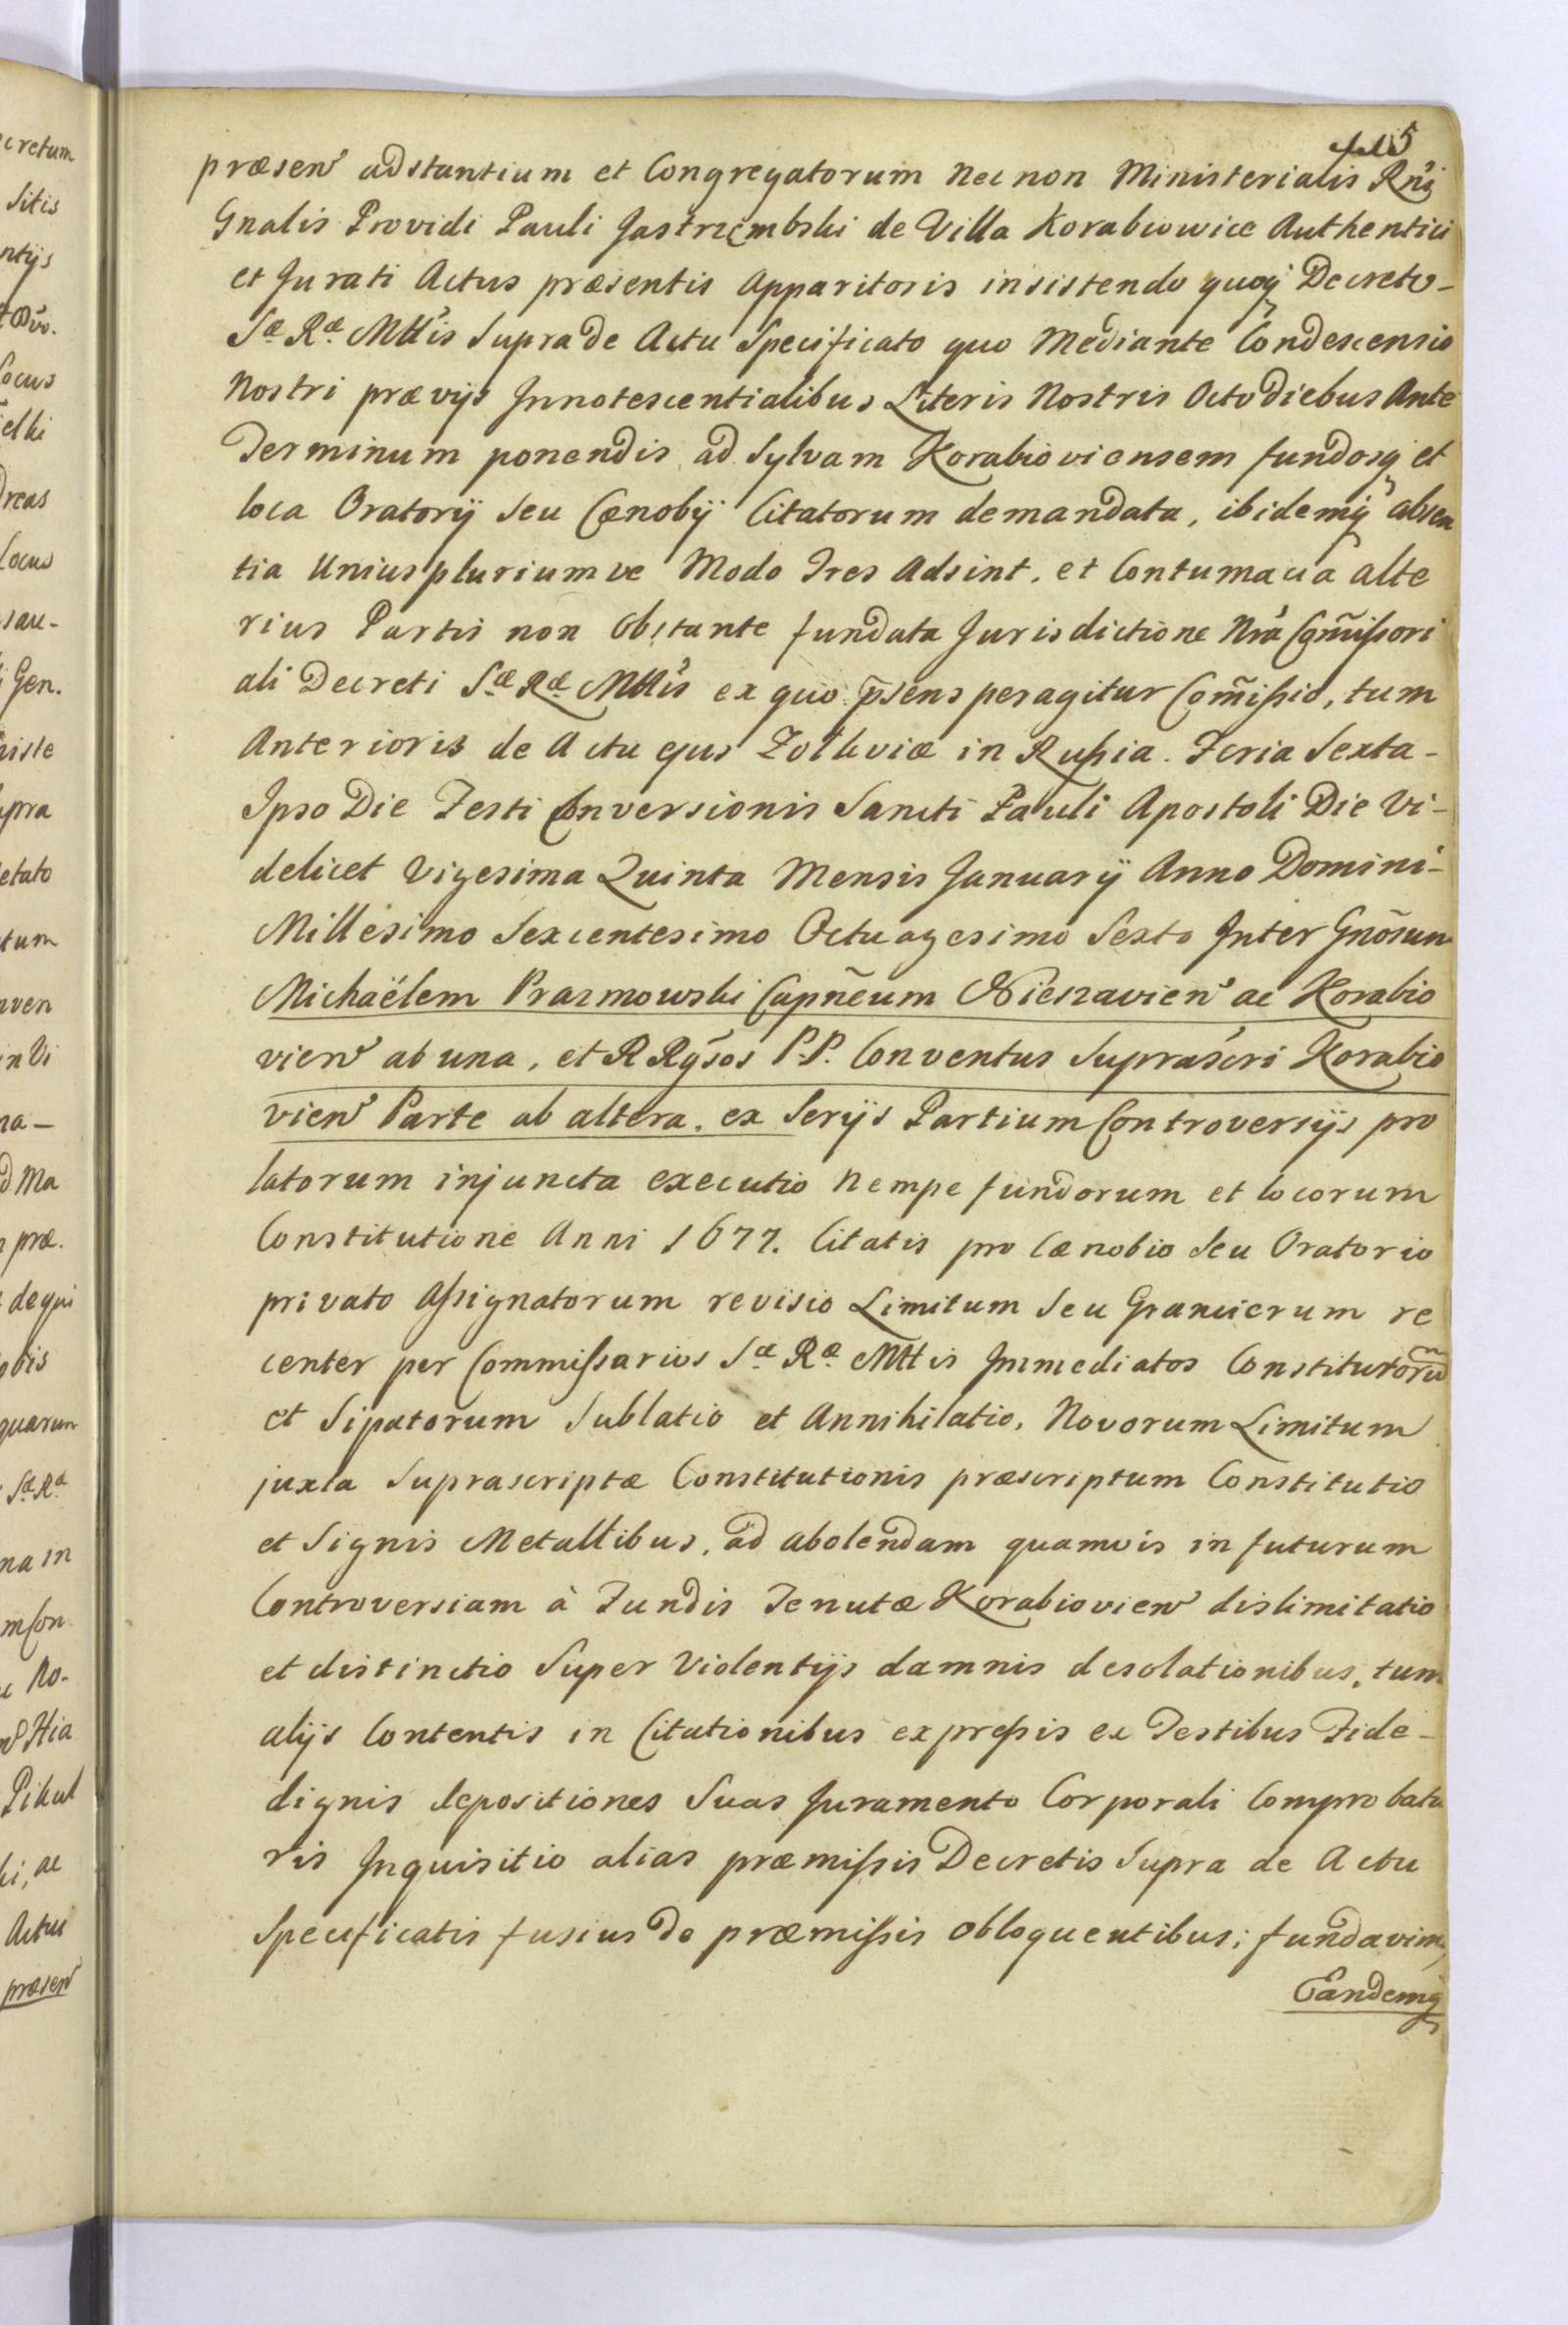 5
præsen adstantium et Congregatorum Nec non Ministerialis Rni
Gnalis Providi Pauli Jastrzembski de Villa Korabiowice Authentici
et Jurati Actus præsentis Apparitoris insistendo quoq Decreto-
Sæ Ræ Mttis Supra de Actu Specificato quo Mediante Condescensio
Nostri prævijs Innotescentialibus Literis Nostris Octo diebus Ante
Terminum ponendis ad Sylvam Korabioviensem fundosq et
loca Oratorÿ Seu Cœnobÿ Citatorum demandata, ibidemq absen
tia Unius pluriumve Modo Tres Adsint, et Contumacia alte
rius Partis non Obstante fundata Jurisdictione Nrã Com̃issori
ali Decreti Sæ Ræ Mttis ex quo p̃sens peragitur Com̃issio, tum
Anterioris de Actu ejus Zolkviæ in Russia. Feria Sexta-
Ipso Die Festi Conversionis Sancti Pauli Apostoli Die Vi-
delicet Vigesima Quinta Mensis Januarÿ Anno Domini-
Millesimo Sexcentesimo Octuagesimo Sexto Inter Gnõsum
Michaëlem Prazmowski Capñeum Nieszavien ac Korabio
vien ab una, et R Rgsos P.P. Conventus Suprascri Korabio
vien Parte ab altera. ex Serijs Partium Controversijs pro
latorum injuncta executio Nempe fundorum et locorum
Constitutione Anni 1677. Citatis pro Cænobio Seu Oratorio
privato Assignatorum revisio Limitum Seu Granicierum re
center per Commissarios Sæ Ræ Mttis Immediatos Constitutoru
et Sipatorum Sublatio et Annihilatio, Novorum Limitum
juxta Suprascriptæ Constitutionis præscriptum Constitutio
et Signis Metallibus, ad abolendam quamvis in futurum
Controversiam à Fundis Tenutæ Korabiovien dislimitatio
et distinctio Super Violentijs damnis desolationibus, tum
alijs Contentis in Citationibus expressis ex Testibus Fide-
dignis depositiones Suas Juramento Corporali Comprobatu
ris Inquisitio alias præmissis Decretis Supra de Actu
Specificatis fusius de præmissis obloquentibus; fundavim
Eandemq